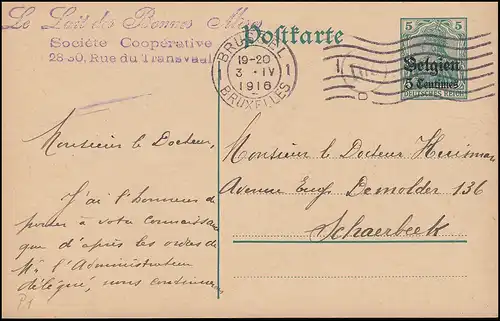 Le Lait des Bonnes Mères
Société Coopérative
28-30, Rue du Transvaal
Postkarte
BRUSSEL
19-20
1 3 -IV 1
1916
BRUXELLES
5 5
Belgien
5 Centimes
DEUTSCHES REICH
Monsieur le Docteur,
J'ai l'honneur de
porter à votre connaissance
que d'après les ordres de
Mr l'Administrateur
délégué, nous continuerons
P1
Monsieur le Docteur Huisman
Avenue Eug. Demolder 136
Schaerbeek